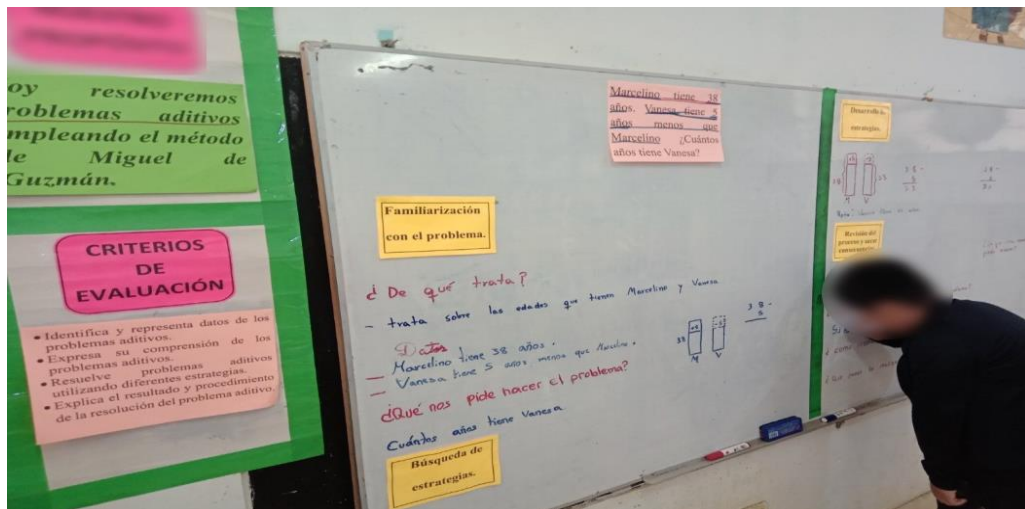 oy resolveremos
roblemas aditivos
mpleando el método
le Miguel de
Guzmán.
CRITERIOS
DE
EVALUACIÓN
• Identifica y representa datos de los
problemas aditivos.
• Expresa su comprensión de los
problemas aditivos.
• Resuelve problemas aditivos
utilizando diferentes estrategias.
• Explica el resultado y procedimiento
de la resolución del problema aditivo.
Marcelino tiene 38
años. Vanesa tiene 5
años menos que
Marcelino ¿Cuántos
años tiene Vanesa?
Familiarización
con el problema.
¿ De qué trata?
- trata sobre las edades que tienen Marcelino y Vanesa
Datos
Marcelino tiene 38 años.
- Vanesa tiene 5 años menos que
-
¿Qué nos pide hacer el problema?
Cuántos años tiene Vanesa
38
M V
38 -
5
Búsqueda de
estrategias.
Desarrollo
estrategias.
M V
38 -
5
33
Revisión del
proceso y sacar
consecuencias.